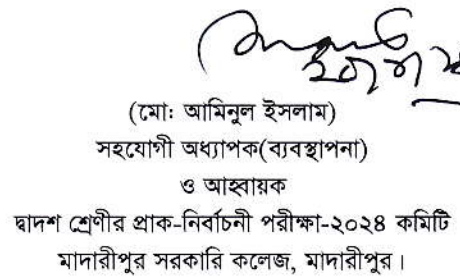 (মো: আমিনুল ইসলাম)
সহযোগী অধ্যাপক(ব্যবস্থাপনা)
ও আহ্বায়ক
দ্বাদশ শ্রেণীর প্রাক-নির্বাচনী পরীক্ষা-২০২৪ কমিটি
মাদারীপুর সরকারি কলেজ, মাদারীপুর।